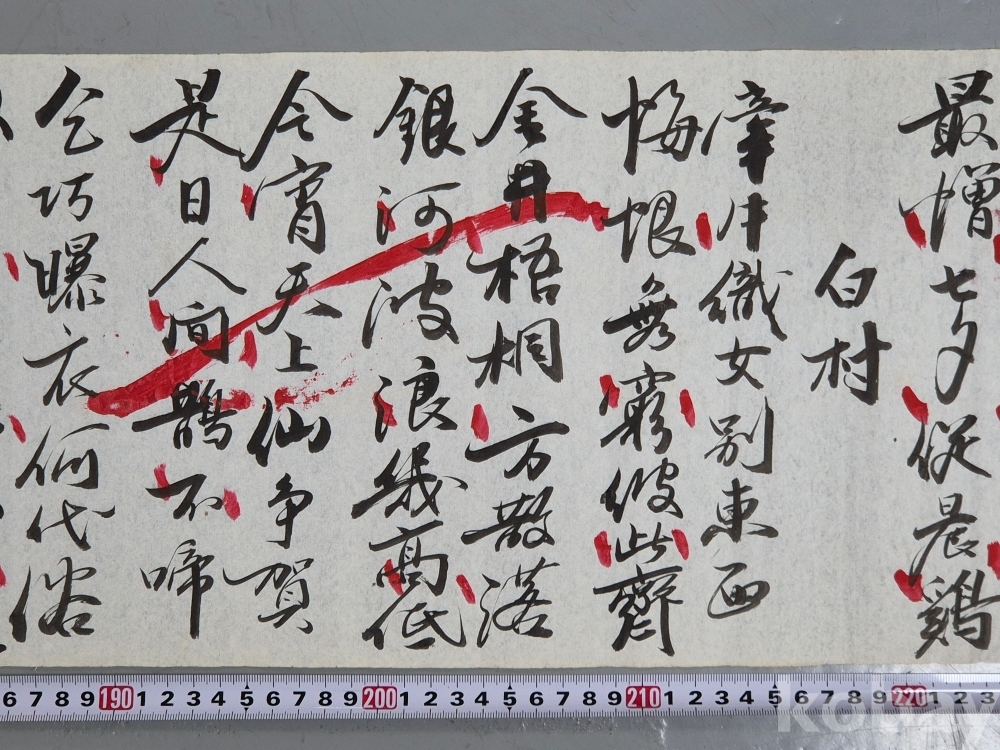 最憎七夕促晨鷄
白村
牽牛織女別東西
悔恨無窮彼此齊
金井梧桐方散落
銀河波浪幾高低
今宵天上仙争賀
是日人間鵲不啼
乞巧曝衣何代俗
6 7 8 9 190 1 2 3 4 5 6 7 8 9 200 1 2 3 4 5 6 7 8 9 210 1 2 3 4 5 6 7 8 9 220 1 2 3